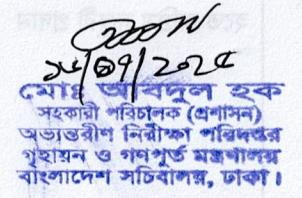 ১৫/০৭/২০২৫
মোঃ আবদুল হক
সহকারী পরিচালক (প্রশাসন)
অভ্যন্তরীণ নিরীক্ষা পরিদপ্তর
গৃহায়ন ও গণপূর্ত মন্ত্রণালয়
বাংলাদেশ সচিবালয়, ঢাকা।